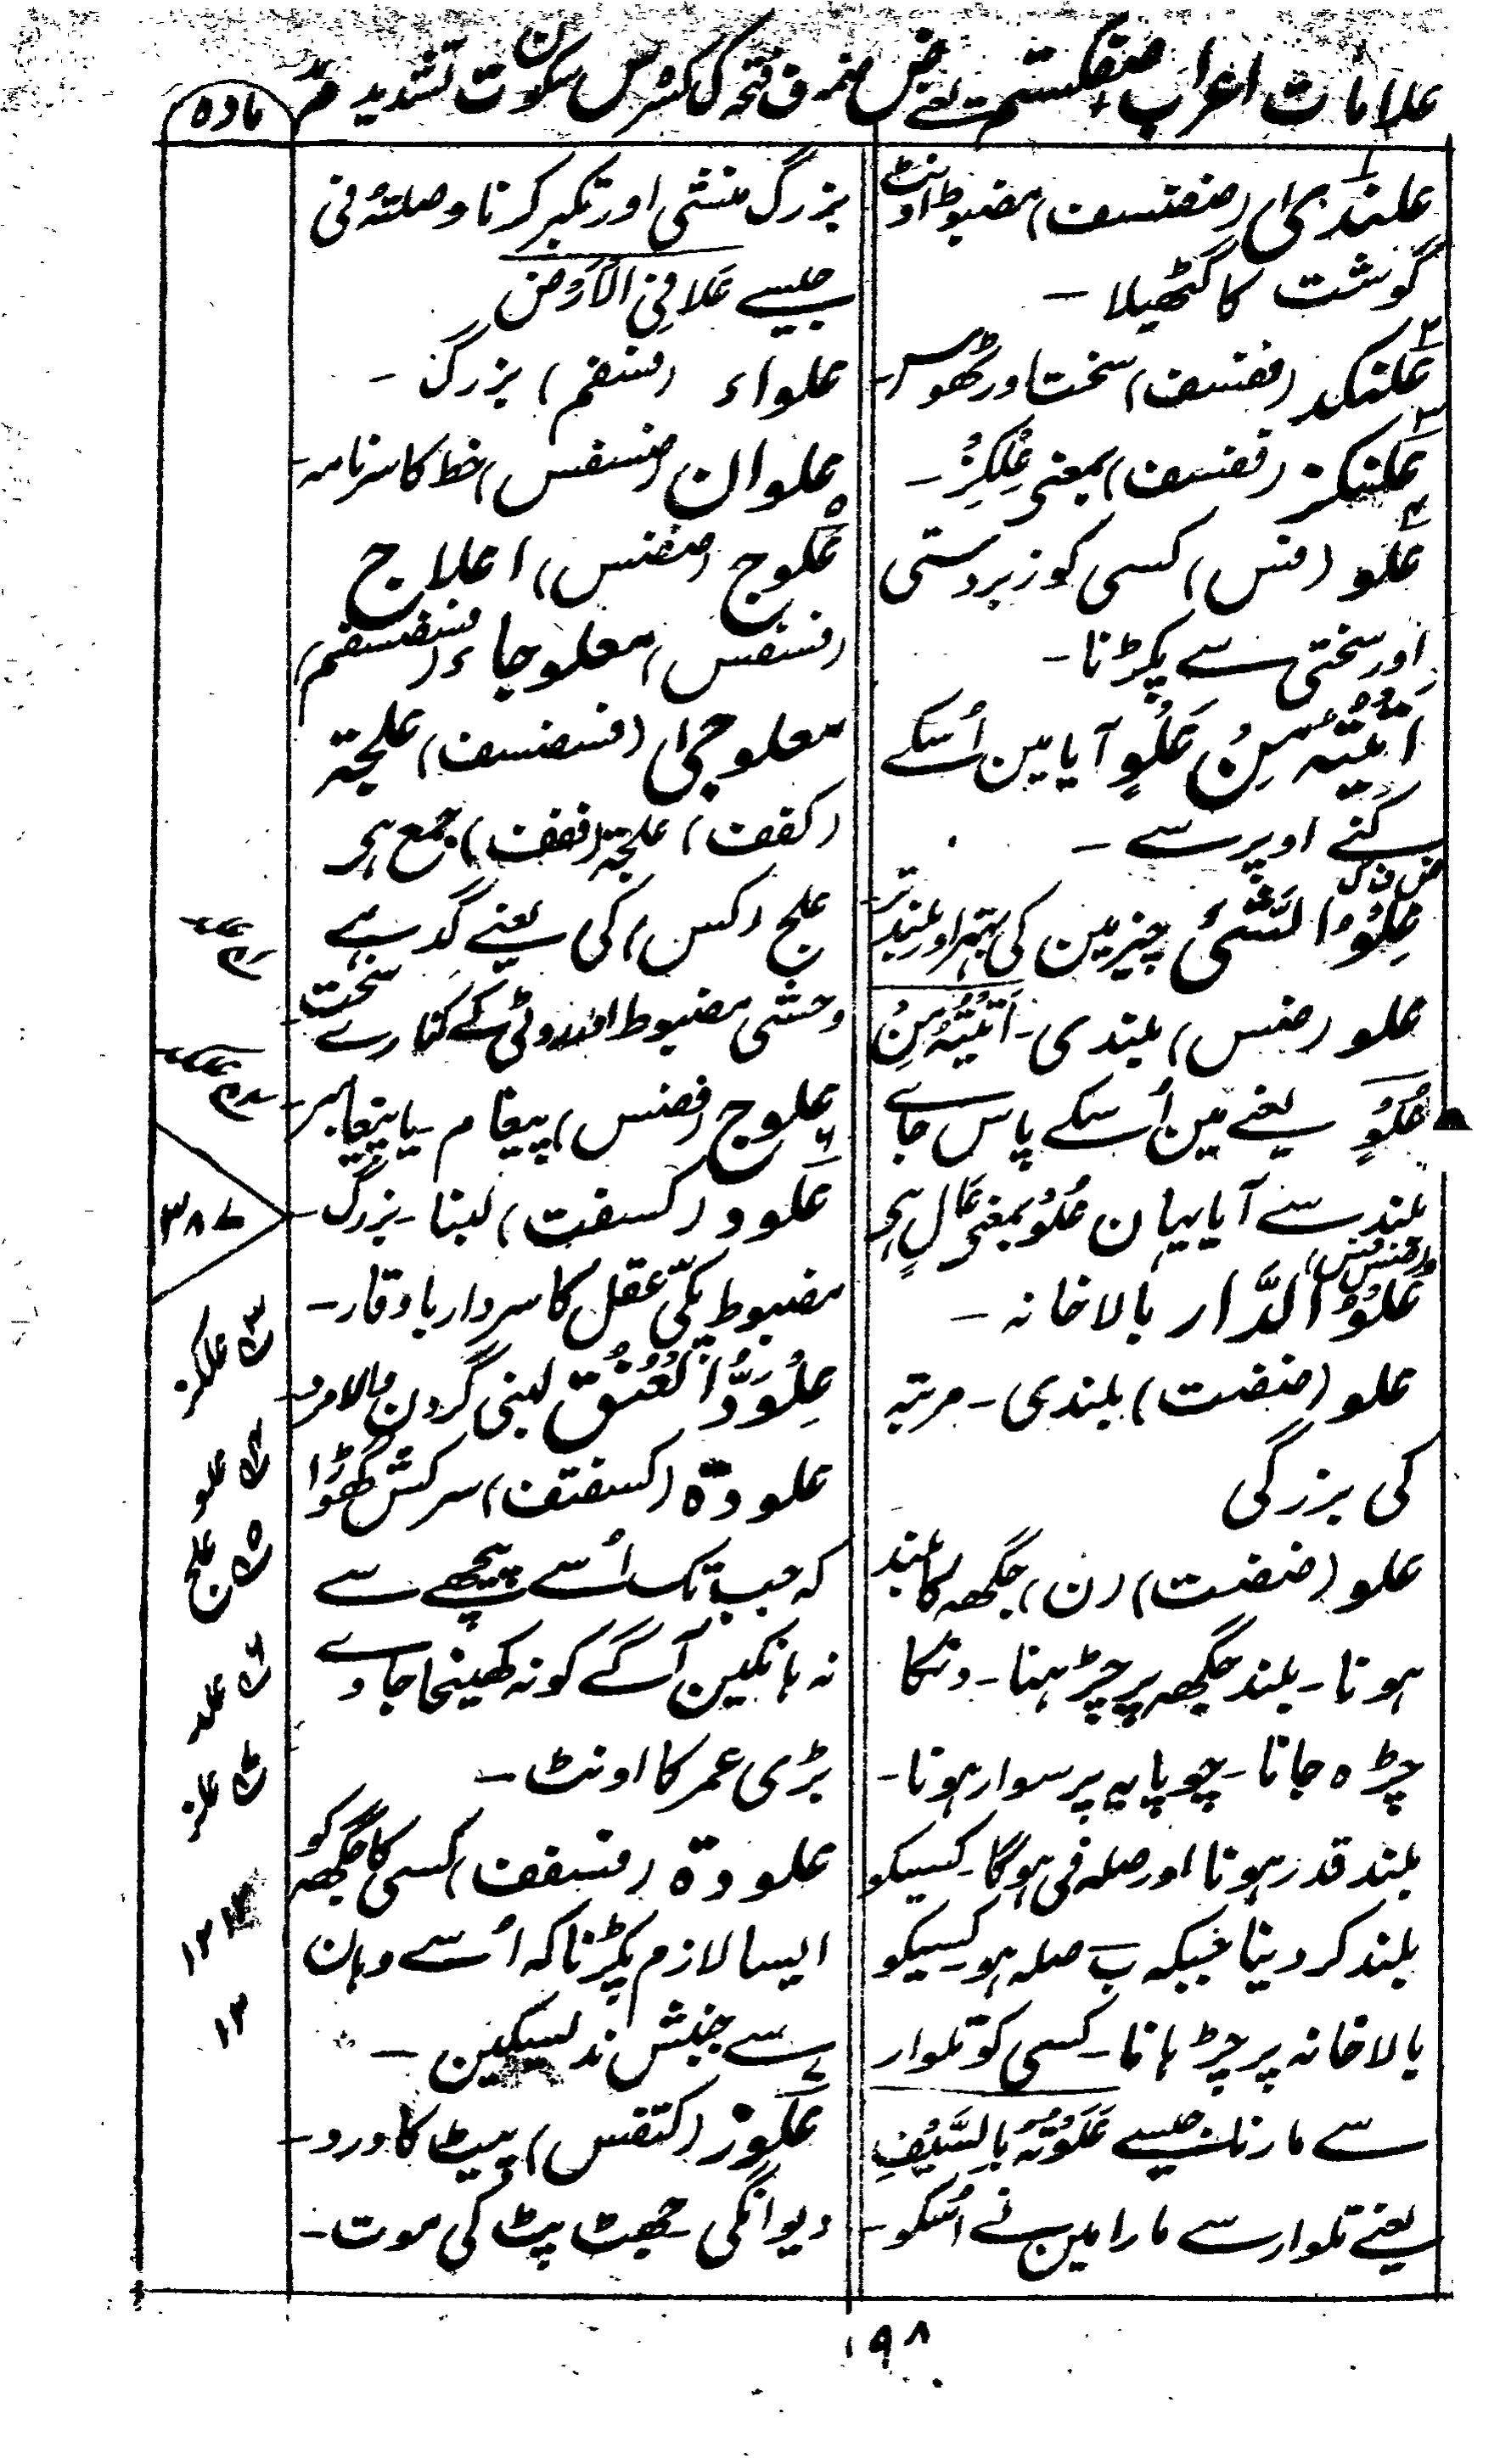 علامات اعراب ضفکستم یعنے ض ضمہ ف فتحہ ک کسرہ س سکون ت تشدید م مد
مادہ
علندیٰ (ضفسف) مضبوط اونٹ
گوشت کا گٹھیلا -
علنکد (ففسف) سخت اور ٹھوس -
علنکز (ففسف) بمعنی عِلکِزُ -
علو (فس) کسی کو زبردستی
اور سختی سے پکڑنا -
اَتَیْتُہٗ مِنْ عَلْوٍ آیا مین اُسکے
کنے اوپر سے -
ض ف ک
عِلْوُ الشَّیْءِ چیز مین کی بہتر اور بلند تر
علو (ضس) بلندی - اَتَیْتُہٗ مِنْ
عُلْوٍ یعنے مین اُسکے پاس جاے
بلند سے آیا یہان عُلْوٍ بمعنی عَالٍ ہی
عُلْوُ الدَّار بالاخانہ -
علو (ضضت) بلندی - مرتبہ
کی بزرگی
علو (ضضت) (ن) جگہہ کا بلند
ہونا - بلند جگہہ پر چڑہنا - دنکا
چڑہ جانا - چوپایہ پر سوار ہونا -
بلند قدر ہونا اور صلہ فی ہوگا - کسیکو
بلند کر دینا جبکہ ب صلہ ہو - کسیکو
بالاخانہ پر چڑہانا - کسی کو تلوار
سے مارنا جیسے عَلَوْتُہٗ بِالسَّیْفِ
یعنے تلوار سے مارا مین نے اُسکو -
بزرگ منشی اور تکبر کرنا وصلتہٗ فی
جیسے عَلَا فِی الْاَرْضِ
علواء (فسفم) بزرگ -
علوان (ضسفس) خط کا سرنامہ -
علوج (ضضس) اعلاج
(فسفس) معلوجاء (فسضسفم)
معلوجیٰ (فسضسف) علجۃ
(کفف) علجۃ (ففف) جمع ہی
علج (کس) کی یعنے گدہے
وحشی مضبوط اور روٹی کے کنارے سخت
علوج (فضس) پیغام - یا پیغامبر -
علود (کسفت) لنبا - بزرگ -
مضبوط پکّی عقل کا سردار باوقار -
عِلْوَدُّ الْعُنُق لنبی گردن والا مرد -
علودۃ (کسفتف) سرکش گھوڑا
کہ جب تک اُسے پیچھے سے
نہ ہانکین آگے کو نہ کھینچا جاوے
بڑی عمر کا اونٹ -
علودۃ (فسفف) کسی کا جگہہ کو
ایسا لازم پکڑنا کہ اُسے وہان
سے جنبش ندیسکین -
علوز (کتفس) پیٹ کا درد -
دیوانگی - جھٹ پٹ کی موت -
۳۸۷
علکز
علو
علج
علد
علز
۱۲
۱۹۸